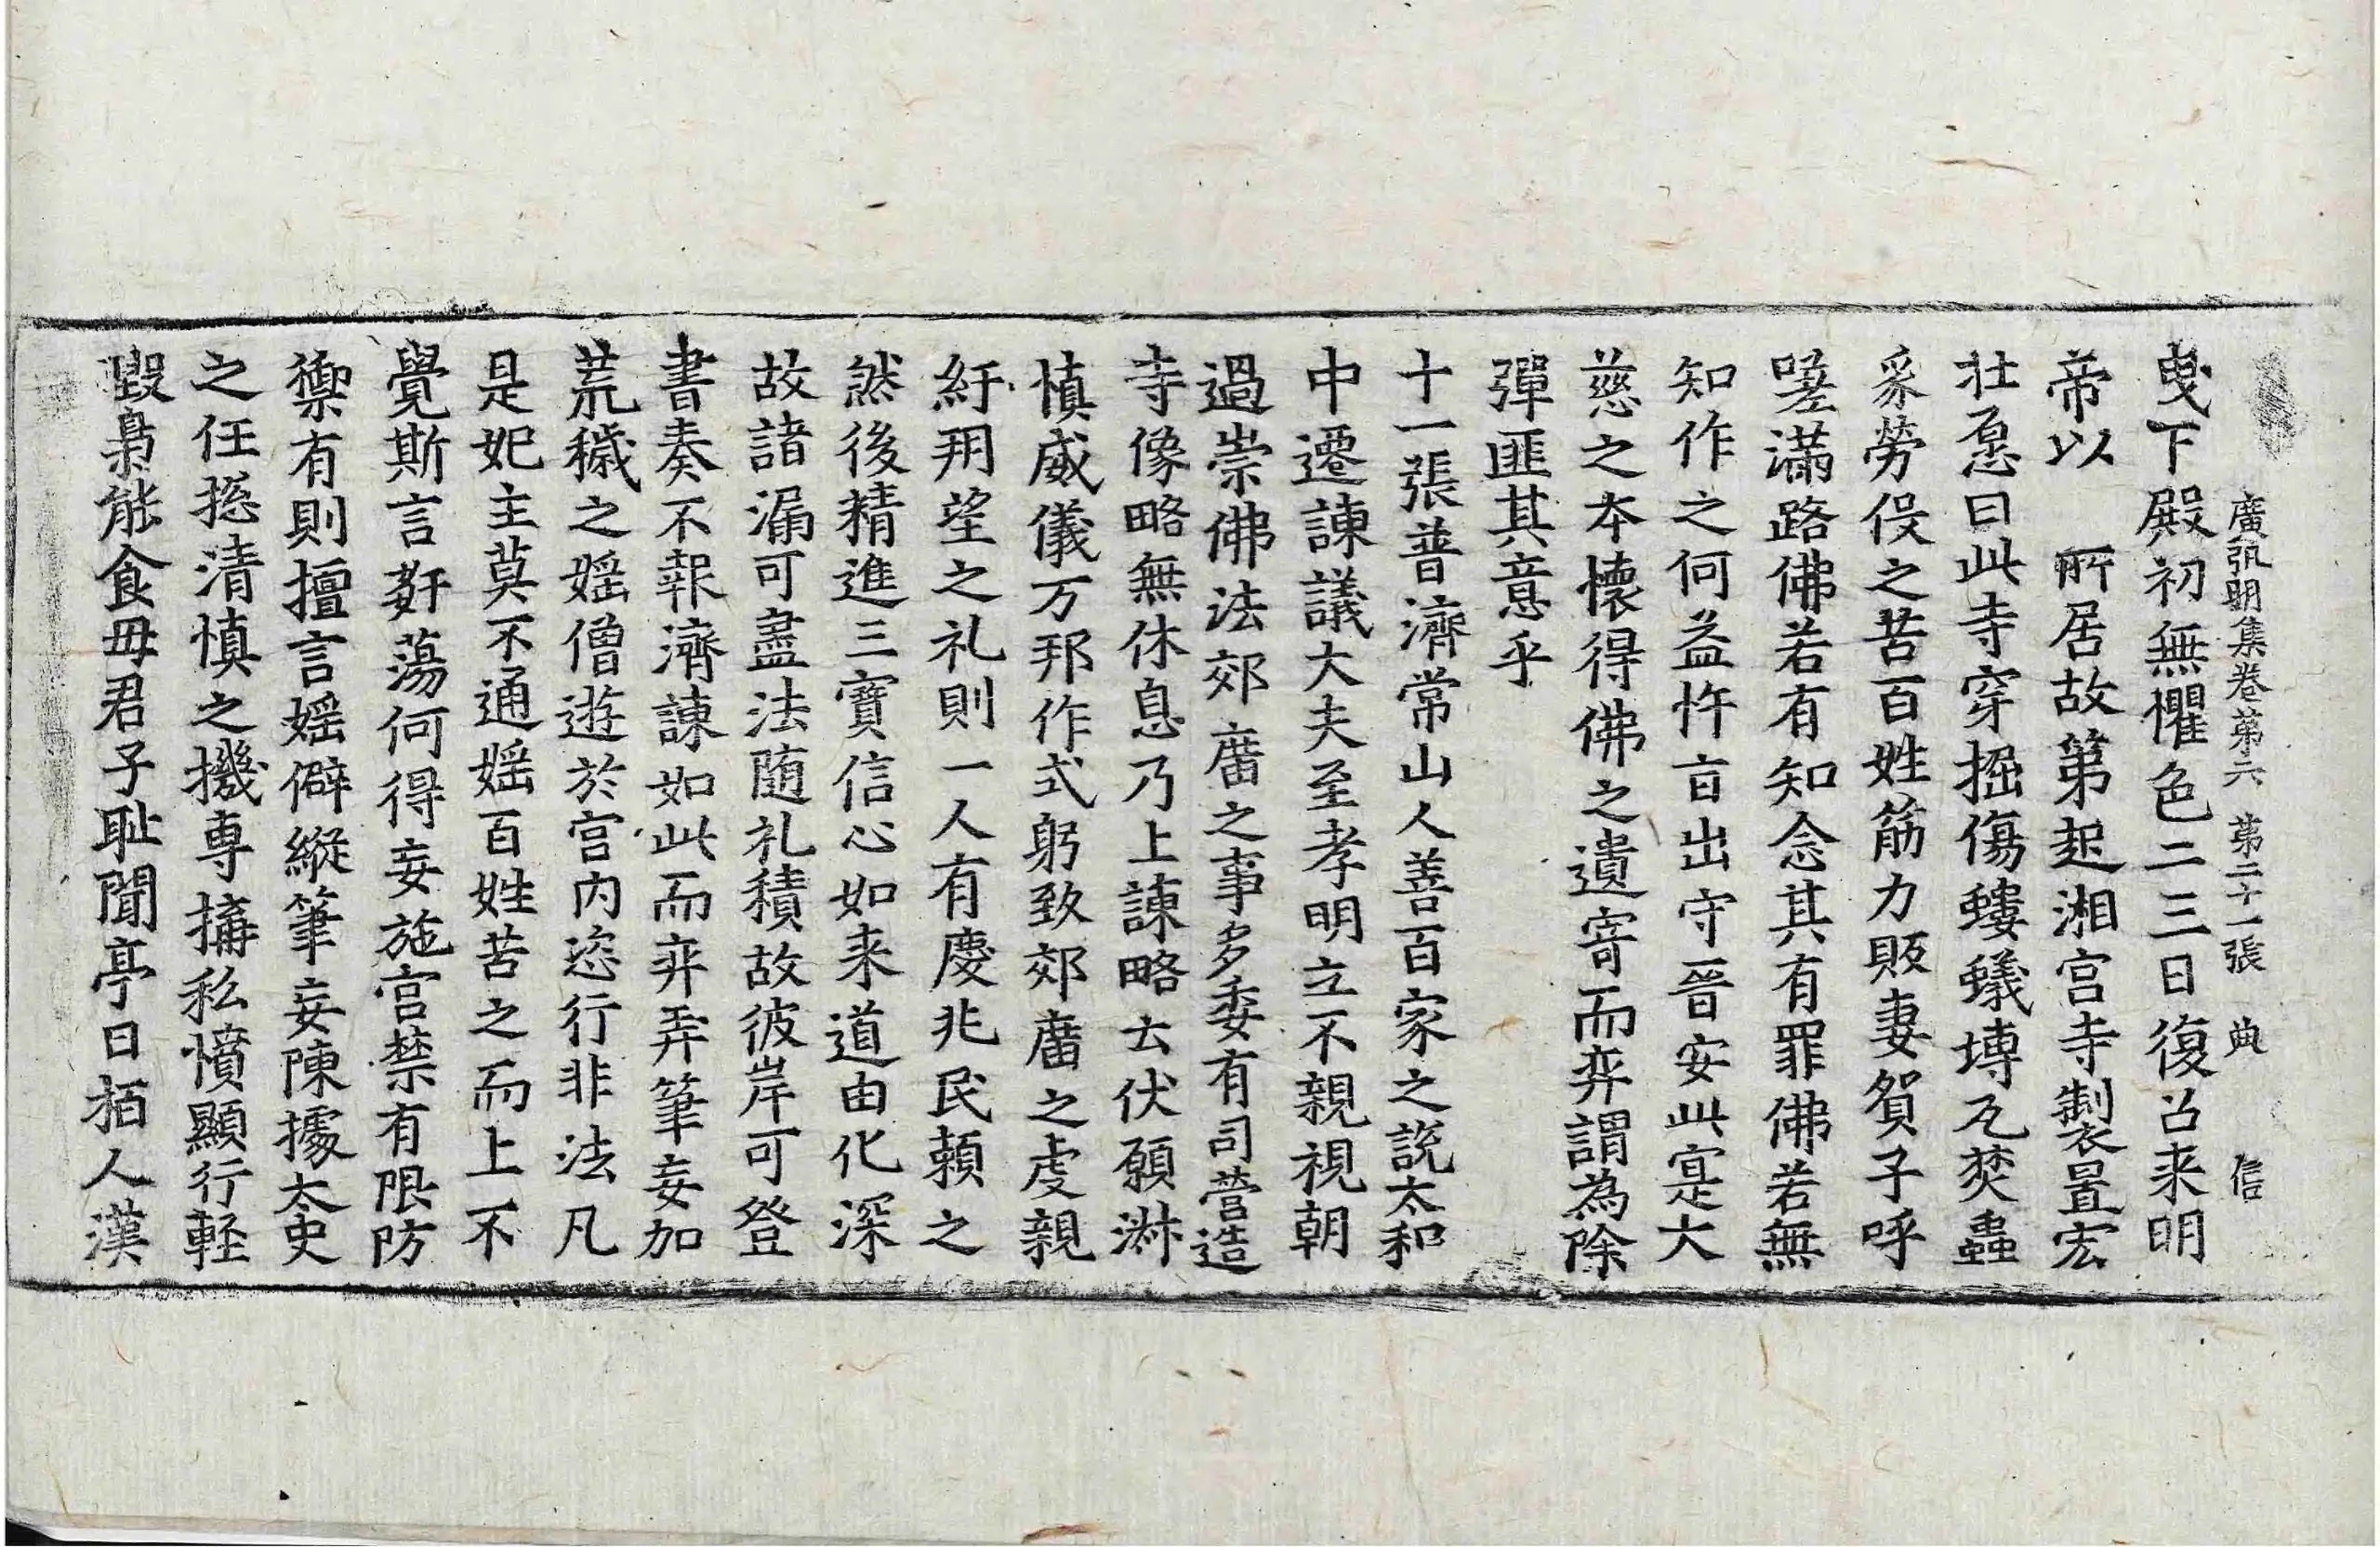 廣弘明集卷第六 第二十一張 典 信
曳下殿初無懼色二三日復召来明
帝以 所居故第起湘宫寺製置宏
壮愿曰此寺穿掘傷螻蟻塼瓦焚蟲
豸勞役之苦百姓筋力販妻貿子呼
嗟滿路佛若有知念其有罪佛若無
知作之何益忤旨出守晉安此寔大
慈之本懷得佛之遺寄而弃謂為除
彈匪其意乎
十一張普濟常山人善百家之說太和
中遷諫議大夫至孝明立不親視朝
過崇佛法郊廟之事多委有司營造
寺像略無休息乃上諫略云伏願淋
慎威儀万邦作式躬致郊廟之虔親
紆朔望之礼則一人有慶兆民頼之
然後精進三寶信心如来道由化深
故諸漏可盡法随礼積故彼岸可登
書奏不報濟諫如此而弃弄筆妄加
荒穢之媱僧遊於宫内恣行非法凡
是妃主莫不通媱百姓苦之而上不
覺斯言姧蕩何得妄施宫禁有限防
禦有則擅言媱僻縱筆妄陳據太史
之任揔清慎之機専搆私憤顯行輕
毀梟能食毋君子耻聞亭曰栢人漢